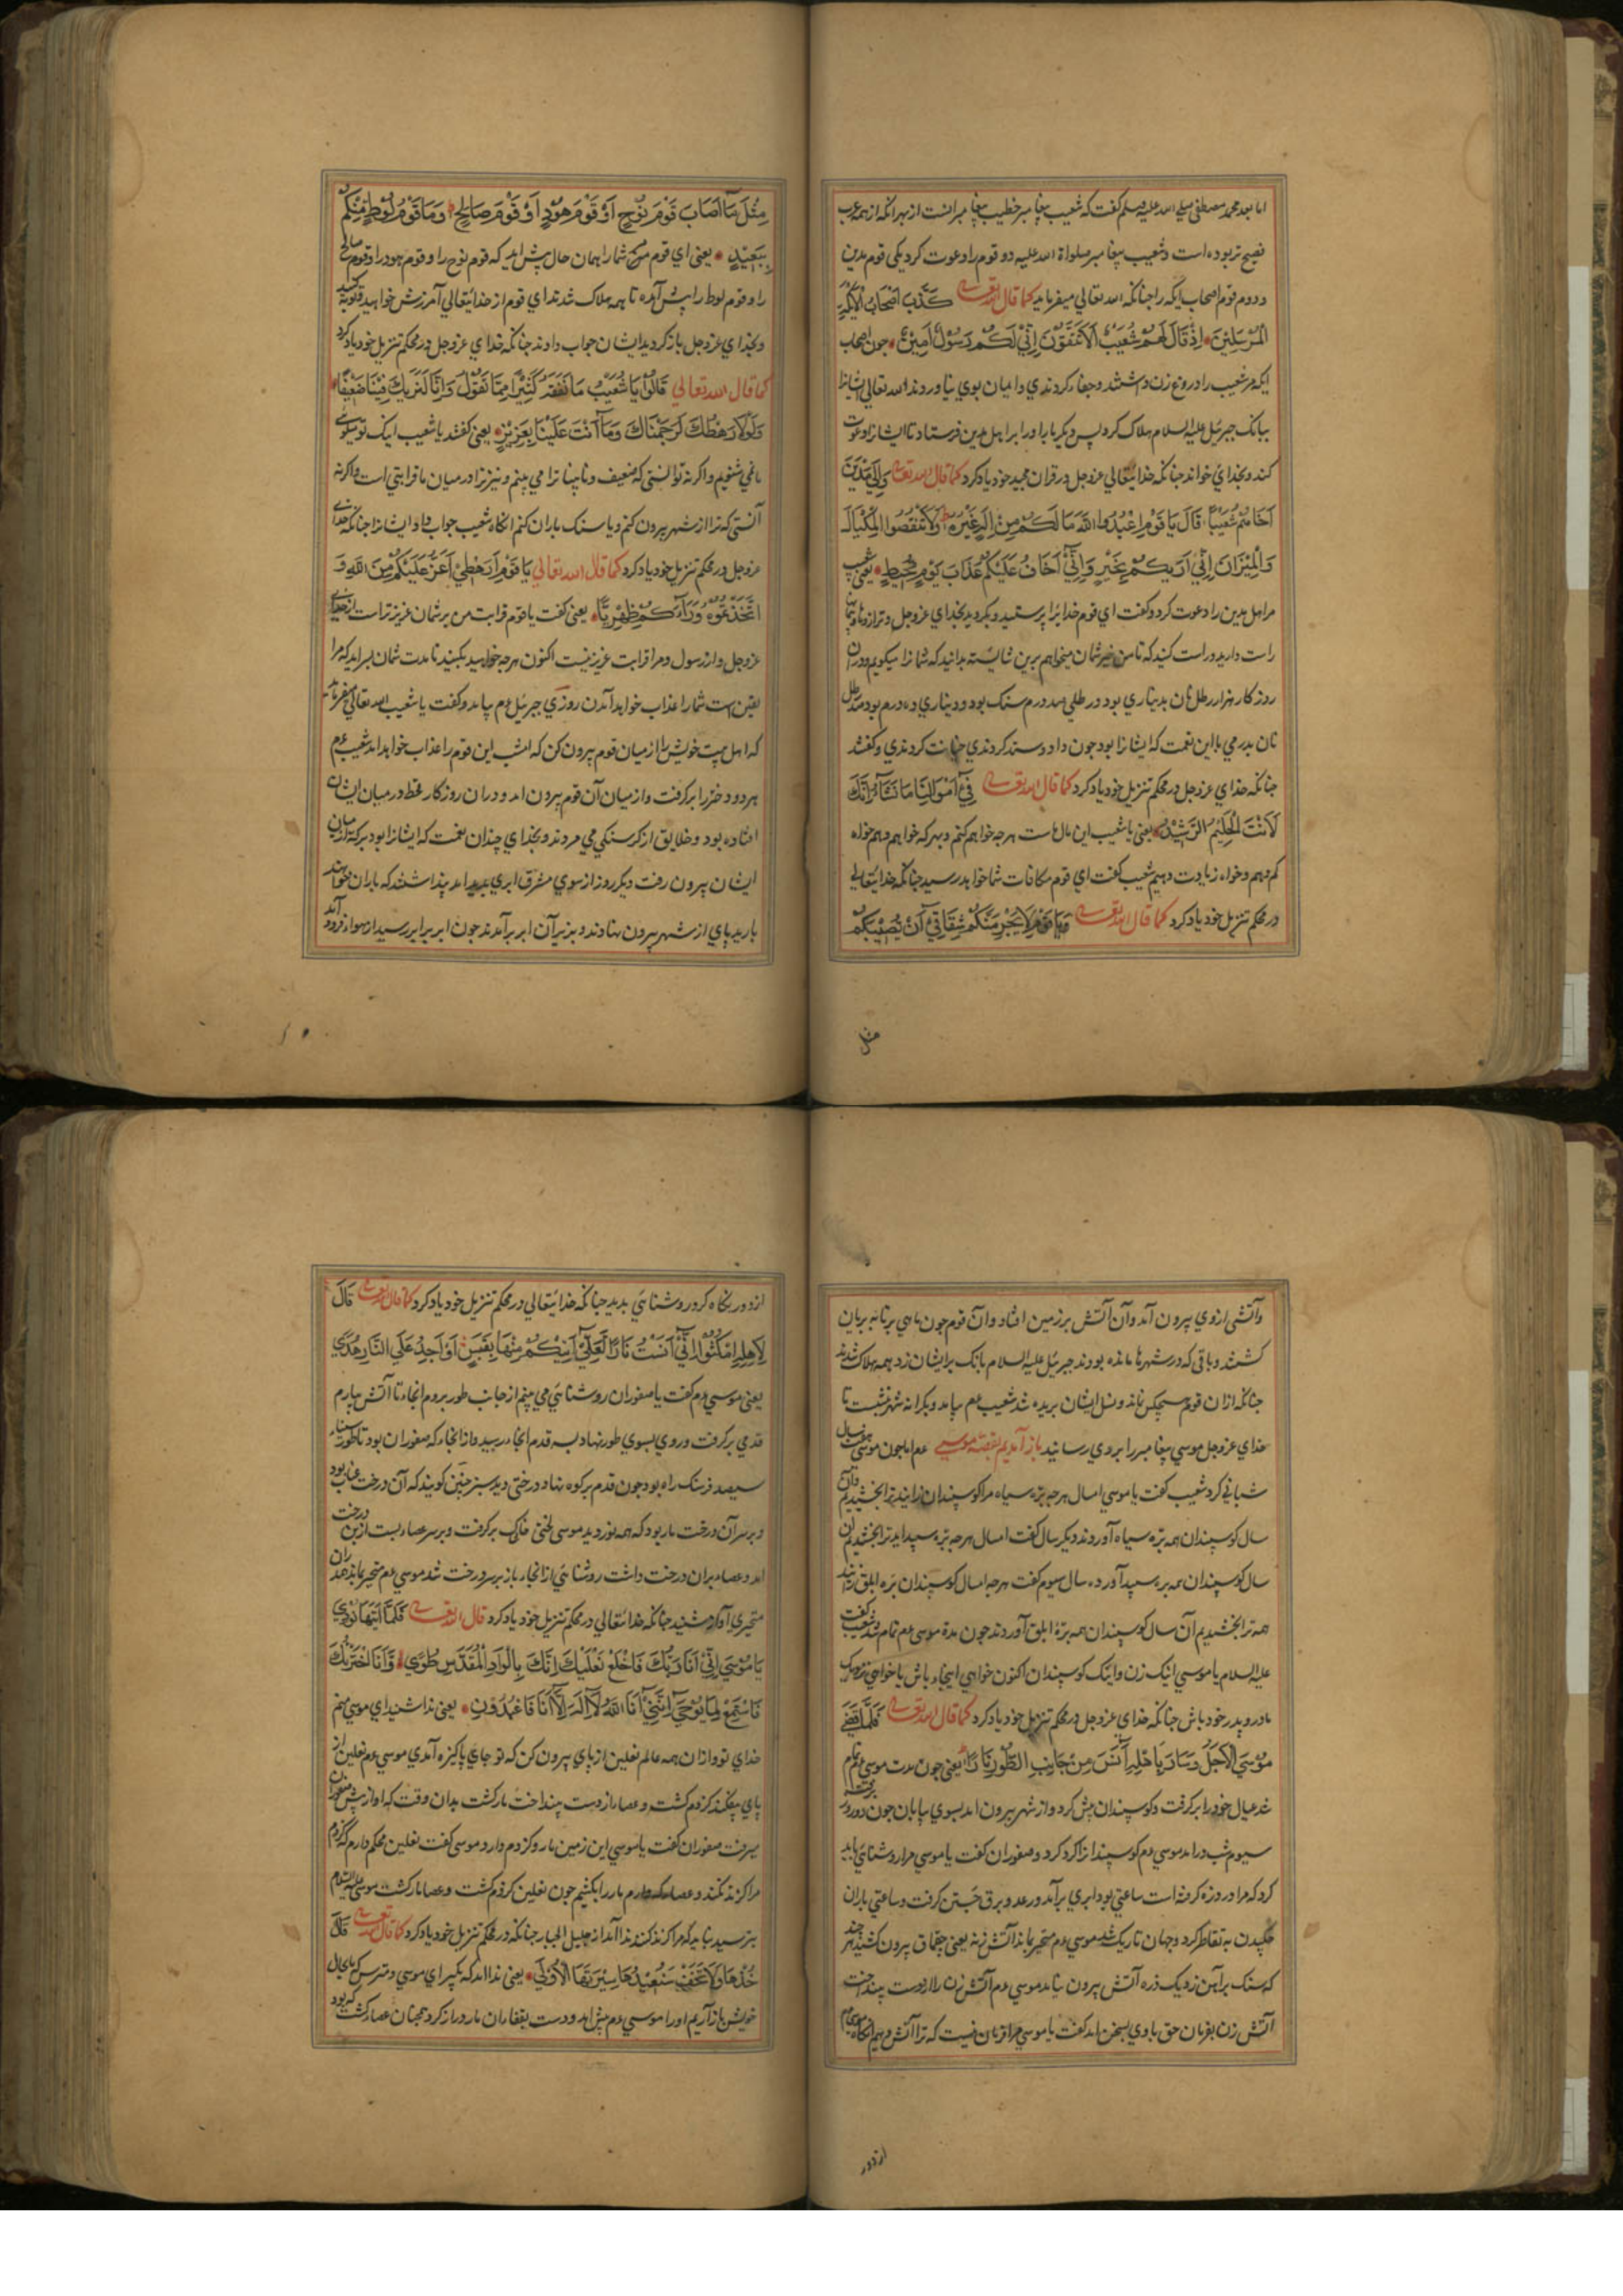 اما بعد محمد مصطفی صلی الله علیه وسلم گفت که شعیب پیغامبر خطیب پیغامبرانست از بهر انکه از همه عرب
فصیح تر بوده است و شعیب پیغامبر صلواة الله علیه دو قوم را دعوت کرد یکی قوم مدین
و دوم قوم اصحاب ایکه را چنانکه الله تعالی میفرماید کما قال الله تعالی کَذَّبَ اَصْحَابُ الْاَیْکَةِ
الْمُرْسَلِیْنَ اِذْ قَالَ لَهُمْ شُعَیْبٌ اَلَا تَتَّقُوْنَ اِنِّیْ لَکُمْ رَسُوْلٌ اَمِیْنٌ جون اصحاب
ایکه مر شعیب را دروغ زن داشتند و جفاء کردندی و ایمان بوی نیاوردند الله تعالی ایشانرا
ببانک جبرئیل علیه السلام هلاک کرد پس دیکر باره اورا بر اهل مدین فرستاد تا ایشانرا دعوت
کند و بخدای خواند جنانکه خدایتعالی عزوجل در قران مجید خود یاد کرد کما قال الله تعالی وَاِلٰی مَدْیَنَ
اَخَاهُمْ شُعَیْبًا قَالَ یَا قَوْمِ اعْبُدُوا اللّٰهَ مَا لَکُمْ مِنْ اِلٰهٍ غَیْرُهُ وَلَا تَنْقُصُوا الْمِکْیَالَ
وَالْمِیْزَانَ اِنِّیْ اَرٰیکُمْ بِخَیْرٍ وَاِنِّیْ اَخَافُ عَلَیْکُمْ عَذَابَ یَوْمٍ مُحِیْطٍ یعنی شعیب
مر اهل مدین را دعوت کرد و گفت ای قوم خدایرا پرستید و بکروید بخدای عزوجل و ترازوها و پیمانها
راست دارید و راست کنید که تا من خیر شمان میخواهم برین شایسته بدانید که شما را میکویم و دران
روزکار هزار رطل نان بدیناری بود و رطلی صد درم سنک بود و دیناری ده درم بود صد رطل
نان بدرمی با این نعمت که ایشانرا بود جون داد و ستد کردندی خیانت کردندی و کفتند
جنانکه خدای عزوجل در محکم تنزیل خود یاد کرد کما قال الله تعالی فِیْ اَمْوَالِنَا مَا نَشَاءُ اِنَّكَ
لَاَنْتَ الْحَلِیْمُ الرَّشِیْدُ یعنی یا شعیب این مال ماست هرجه خواهم کنم و بهر که خواهم دهم خواه
کم دهم و خواه زیادت دهیم شعیب کفت ای قوم مکافات شما خواهد رسید جنانکه خدایتعالی
در محکم تنزیل خود یاد کرد کما قال الله تعالی وَیَا قَوْمِ لَا یَجْرِمَنَّکُمْ شِقَاقِیْ اَنْ یُصِیْبَکُمْ
مثل
مِثْلُ مَا اَصَابَ قَوْمَ نُوْحٍ اَوْ قَوْمَ هُوْدٍ اَوْ قَوْمَ صَالِحٍ وَمَا قَوْمُ لُوْطٍ مِنْکُمْ
بِبَعِیْدٍ یعنی ای قوم من شما را همان حال پیش اید که قوم نوح را و قوم هود را و قوم صالح
را و قوم لوط را پیش آمده تا همه هلاک شدند ای قوم از خدایتعالی آمرزش خواهید و توبه کنید
و بخدای عزوجل باز کردید ایشان جواب دادند جنانکه خدای عزوجل در محکم تنزیل خود یاد کرد
کما قال الله تعالی قَالُوْا یَا شُعَیْبُ مَا نَفْقَهُ کَثِیْرًا مِمَّا تَقُوْلُ وَاِنَّا لَنَرٰیكَ فِیْنَا ضَعِیْفًا
وَلَوْلَا رَهْطُكَ لَرَجَمْنَاكَ وَمَا اَنْتَ عَلَیْنَا بِعَزِیْزٍ یعنی کفتند یا شعیب اینک تو میکوئی
ما نمی شنویم و اکر نه توانستی که ضعیف و نابینا ترا می بینم و نیز ترا در میان ما قرابتی است و اکر نه
آنستی که ترا از شهر بیرون کنم و یا سنک باران کنم انکاه شعیب جواب داد ایشانرا جنانکه خدای
عزوجل در محکم تنزیل خود یاد کرد کما قال الله تعالی یَا قَوْمِ اَرَهْطِیْ اَعَزُّ عَلَیْکُمْ مِنَ اللّٰهِ وَ
اتَّخَذْتُمُوْهُ وَرَاءَکُمْ ظِهْرِیًّا یعنی کفت یا قوم قرابت من بر شمان عزیزتر است از خدای
عزوجل و از رسول و مرا قرابت عزیز نیست اکنون هرجه خواهید بکنید تا مدت شمان بسر اید که مرا
یقین است شما را عذاب خواهد آمدن روزی جبرئیل عم بیامد و کفت یا شعیب الله تعالی میفرماید
که اهل بیت خویش را از میان قوم بیرون کن که امشب این قوم را عذاب خواهد امد شعیب عم
هر دو دختر را بر کرفت و از میان آن قوم بیرون امد و دران روزکار قحط در میان ایشان
افتاده بود و خلایق از کرسنکی می مردند و بخدای چندان نعمت که ایشانرا بود برکه از میان
ایشان بیرون رفت دیکر روز از سوی مشرق ابری پدید امد پنداشتند که باران خواهد
بارید پای از شهر بیرون نهادند و بزیر آن ابر برآمدند جون ابر برابر رسید از هوا فرود آمد
وآتشی ازوی بیرون آمد وآن آتش بر زمین افتاد وآن قوم جون ماهی بر تابه بریان
کشتند و باقی که در شهرها مانده بودند جبرئیل علیه السلام بانک بر ایشان زد همه هلاک شدند
جنانکه ازان قوم هیچکس نماند و نسل ایشان بریده شد شعیب عم بیامد و بکرانه شهر نشست تا
خدای عزوجل موسی پیغامبر را بروی رسانید باز آمدیم بقصه موسی عم اما جون موسی هفت سال
شبانی کرد شعیب کفت یا موسی امسال هرجه بره سیاه مرا کوسپندان زایند ترا بخشیدم وآن
سال کوسپندان همه بره سیاه آوردند دیکر سال کفت امسال هرجه بره سپید اید ترا بخشیدم آن
سال کوسپندان همه بره سپید آورده سال سیوم کفت هرجه امسال کوسپندان بره ابلق زایند
همه ترا بخشیدیم آن سال کوسپندان همه بره ابلق آوردند جون مدة موسی عم تمام شد شعیب کفت
علیه السلام یا موسی اینک زن و اینک کوسپندان اکنون خواهی اینجاء باش یا خواهی نزدیک
مادر و پدر خود باش جنانکه خدای عزوجل در محکم تنزیل خود یاد کرد کما قال الله تعالی فَلَمَّا قَضٰی
مُوْسَی الْاَجَلَ وَسَارَ بِاَهْلِهِ اٰنَسَ مِنْ جَانِبِ الطُّوْرِ نَارًا یعنی جون مدت موسی عم تمام
شد عیال خود را بر کرفت و کوسپندان پیش کرد و از شهر بیرون امد بسوی بیابان جون دو روز برفت
سیوم شب درامد موسی عم کوسپندانرا کرد کرد و صفوران کفت یا موسی مرا روشنائی باید
کرد که مرا درد زه کرفته است ساعتی بود ابری برآمد و رعد و برق جستن کرفت و ساعتی باران
چکیدن به تقاطر کرد و جهان تاریک شد موسی عم متحیر بماند آتش زنه یعنی چقماق بیرون کشید هر چند
که سنک بر آهن زد یک ذره آتش بیرون نیامد موسی عم آتش زن را از دست بینداخت
آتش زن بفرمان حق با وی بسخن امد کفت یا موسی مرا فرمان نیست که ترا آتش دهم انکاه موسی عم
از دور
از دور نکاه کرد روشنائی بدید جنانکه خدایتعالی در محکم تنزیل خود یاد کرد کما قال الله تعالی قَالَ
لِاَهْلِهِ امْکُثُوْا اِنِّیْ اٰنَسْتُ نَارًا لَعَلِّیْ اٰتِیْکُمْ مِنْهَا بِقَبَسٍ اَوْ اَجِدُ عَلَی النَّارِ هُدًی
یعنی موسی عم کفت یا صفوران روشنائی می بینم از جانب طور بروم انجاء تا آتش بیارم
قدمی بر کرفت و روی بسوی طور نهاد بسه قدم انجا رسید و از انجاء که صفوران بود تا طور سیناء
سیصد فرسنک راه بود جون قدم بر کوه نهاد درختی دید سبز چنین کویند که آن درخت عناب بود
و بر سر آن درخت نار بود که همه نور دید موسی لختی خاشاک بر کرفت و بر سر عصاء بست از بن درخت
امد و عصاء بران درخت داشت روشنائی از انجاء باز بر سر درخت شد موسی عم متحیر بماند دران
متحیری آواز شنید جنانکه خدایتعالی در محکم تنزیل خود یاد کرد قال الله تعالی فَلَمَّا اَتٰیهَا نُوْدِیَ
یَا مُوْسٰی اِنِّیْ اَنَا رَبُّكَ فَاخْلَعْ نَعْلَیْكَ اِنَّكَ بِالْوَادِ الْمُقَدَّسِ طُوًی وَاَنَا اخْتَرْتُكَ
فَاسْتَمِعْ لِمَا یُوْحٰی اِنَّنِیْ اَنَا اللّٰهُ لَا اِلٰهَ اِلَّا اَنَا فَاعْبُدُوْنِ یعنی ندا شنید ای موسی منم
خدای تو و ازان همه عالم نعلین از پای بیرون کن که تو جای پاکیزه آمدی موسی عم نعلین از
پای بیفکند کزدم کشت و عصا را از دست بینداخت مار کشت بدان وقت که او از پیش صفوران
میرفت صفوران کفت یا موسی این زمین مار و کزدم دارد موسی کفت نعلین محکم دارم که کزدم
مرا کزند نکند و عصاء که دارم مار را بکشم جون نعلین کزدم کشت و عصا مار کشت موسی علیه السلام
بترسید نباید که مرا کزند کنند ندا آمد از جلیل الجبار جنانکه در محکم تنزیل خود یاد کرد کما قال الله تعالی قَالَ
خُذْهَا وَلَا تَخَفْ سَنُعِیْدُهَا سِیْرَتَهَا الْاُوْلٰی یعنی ندا امد که بکیر ای موسی و مترس که ما بحال
خویش باز آریم اورا موسی عم پیش امد و دست بقفاران مار دراز کرد همچنان عصاء کشت که بود